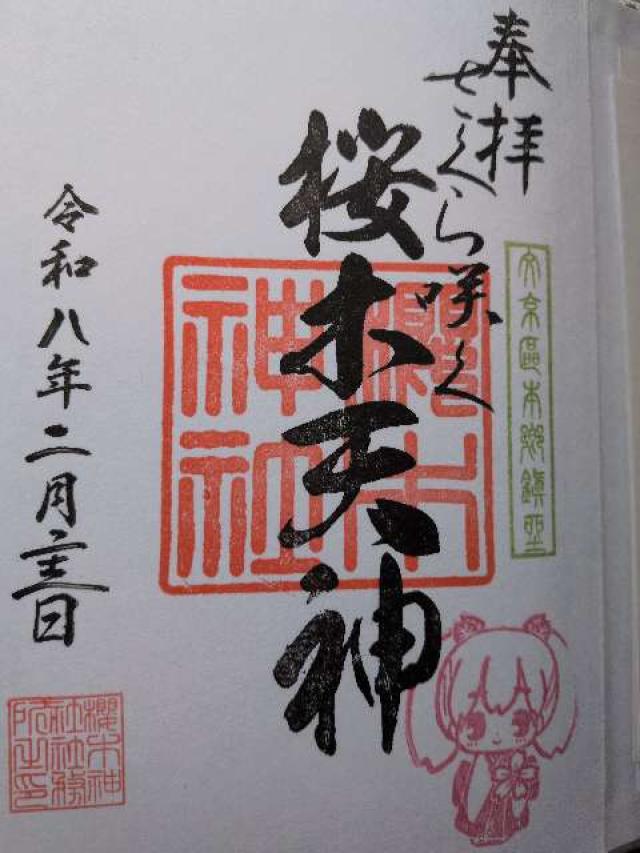 奉拝
さくら咲く
文京區本郷鎮座
桜木天神
櫻木神社
令和八年二月二十三日
櫻木神社社務所之印